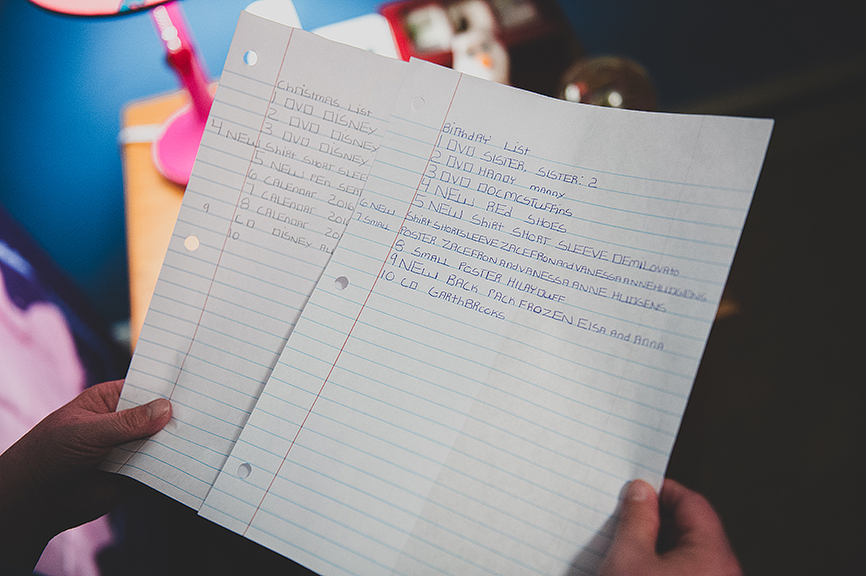 Christmas List
1 DVD DISNEY
2 DVD DISNEY
3 DVD DISNEY
4 NEW Shirt short SLEE
5 NEW PEN SEA
6 CALENDAR 2016
7 CALENDAR 2016
8 CALENDAR 20
9 CD DISNEY AL
10
BiRthdAY LIST
1 DVD SISTER, SISTER: 2
2 DVD HANDY MANNY
3 DVD DOCMCSTUFFINS
4 NEW REd SHOES
5 NEW Shirt ShoRT SLEEVE DEMILOVATO
6 NEW Shirt ShortSLEEVE ZACEFRONandVANESSAANNEHUDGENS
7 SMALL POSTER ZACEFRONandVANESSAANNE HUDGENS
8 SMALL POSTER HILARYDUFF
9 NEW BACK PACK FROZEN ElSA and AnnA
10 CD GARthBROOKS